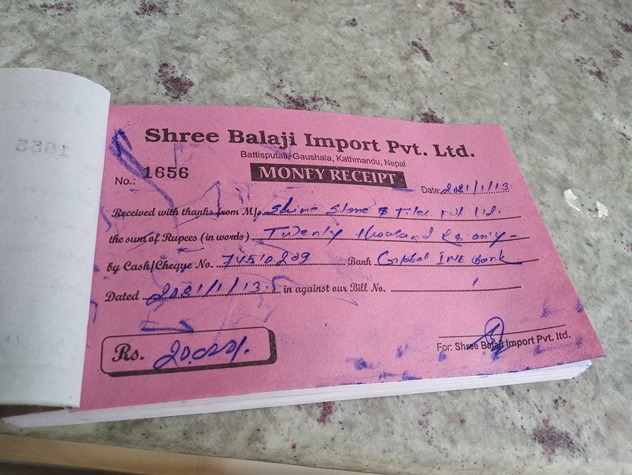 Shree Balaji Import Pvt. Ltd.
Battisputali, Gaushala, Kathmandu, Nepal
No.: 1656
MONEY RECEIPT
Date: 2081/1/13
Received with thanks from M/s. Shine Stone & Tiles Pvt Ltd.
the sum of Rupees (in words) Twenty thousand Rs only-
by Cash/Cheqye No. 74510809 Bank IME Bank
Dated 2081/1/13 in against our Bill No.
Rs.
For: Shree Balaji Import Pvt. ltd.